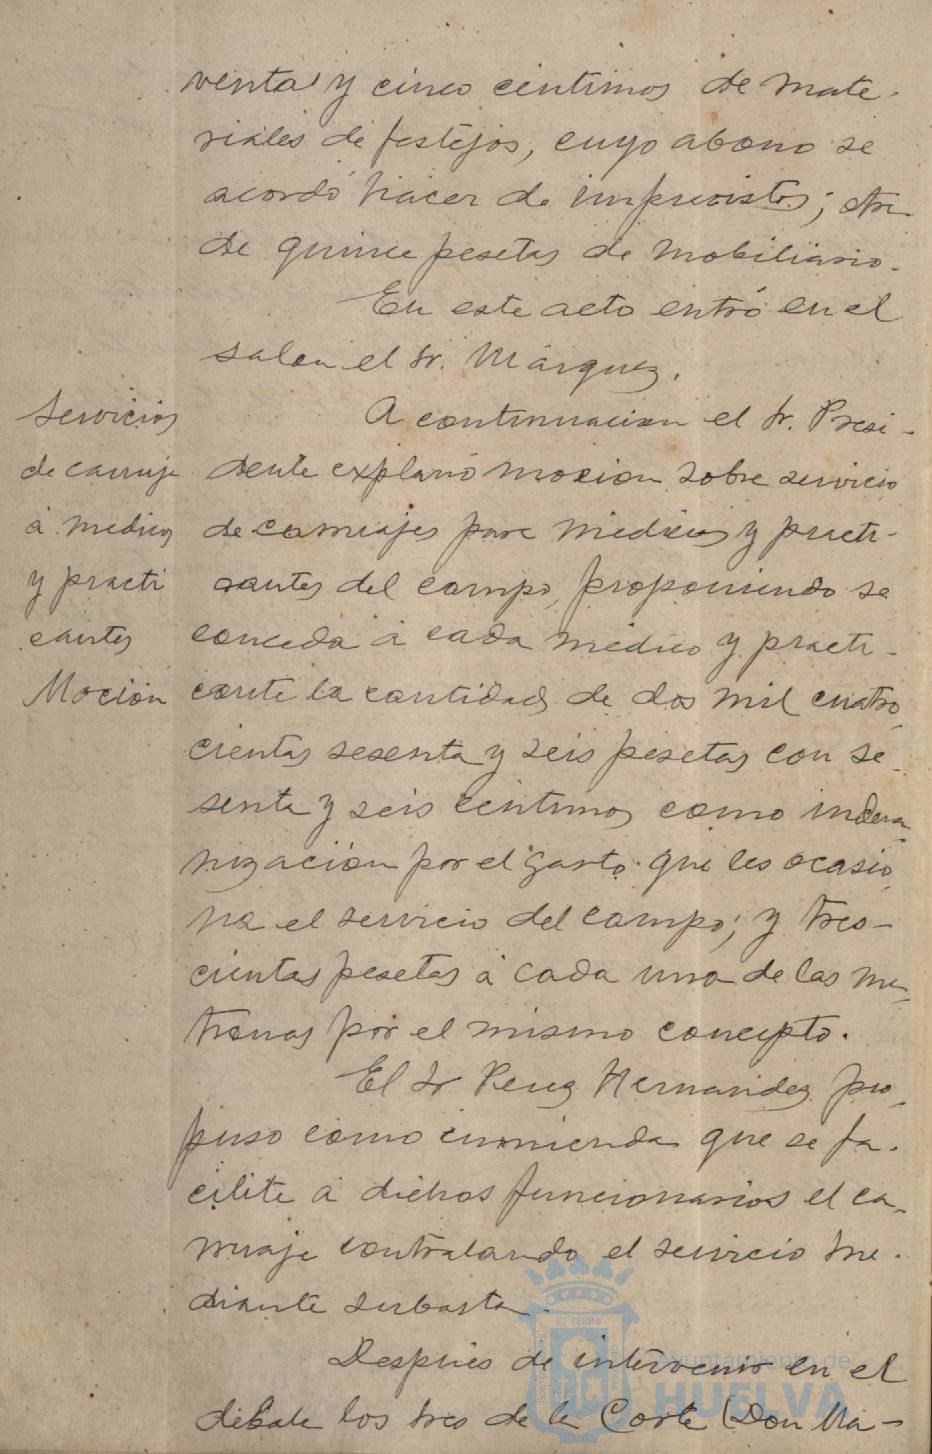 venta y cinco centimos de mate-
riales de festejos, cuyo abono se
acordó hacer de imprevistos; otra
de quince pesetas de mobiliario.
En este acto entró en el
salon el Sr. Márquez.
Servicios
de carruaje
á medicos
y practi
cantes
Moción
A continuacion el Sr. Presi-
dente explanó mocion sobre servicio
de carruajes para medicos y practi-
cantes del campo, proponiendo se
conceda á cada médico y practi-
cante la cantidad de dos mil cuatro
cientas sesenta y seis pesetas con se-
senta y seis centimos como indem-
nización por el gasto que les ocasio
na el servicio del campo; y tres-
cientas pesetas á cada una de las ma-
tronas por el mismo concepto.
El Sr Perez Hernandez pro-
puso como enmienda que se fa-
cilite á dichos funcionarios el ca-
rruaje contratando el servicio me-
diante subasta.
Después de intervenir en el
debate los sres de la Corte (Don Ma-
Ayuntamiento de
HUELVA